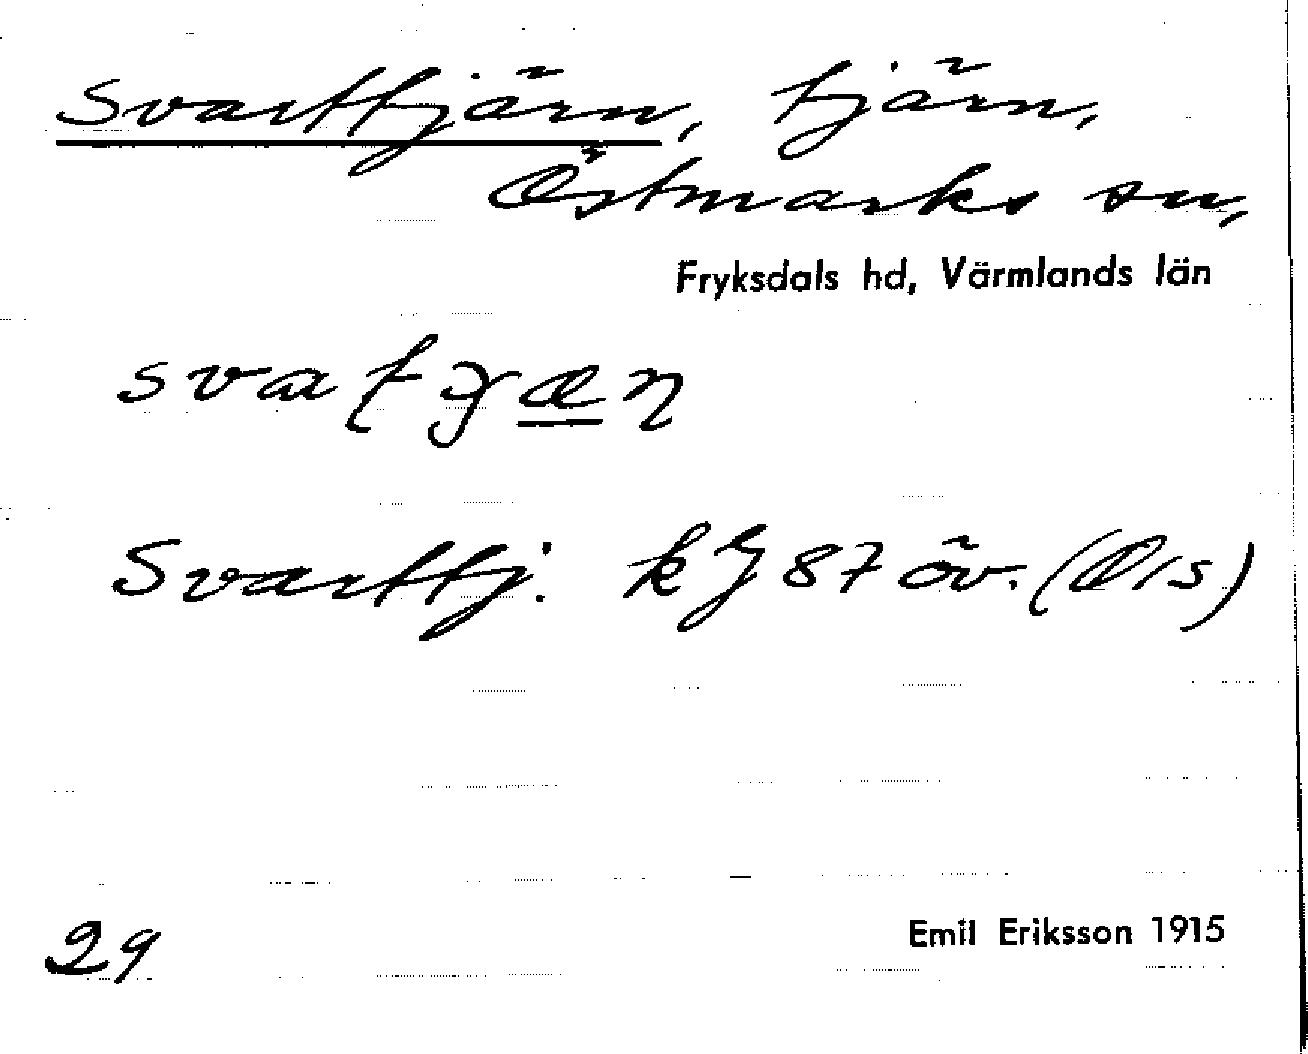 Svarttjärn, tjärn,
Östmarks sn,
Fryksdals hd, Värmlands län
Svarttj. kg 87 öv. (Ö/s)
29
Emil Eriksson 1915